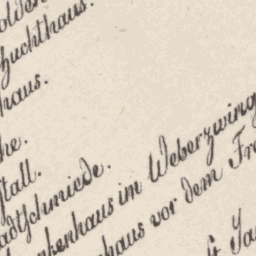 Zuchthaus.
haus.
he.
stall.
adtschmiede.
kenhaus im Weberzwing
haus vor dem Fr
G Ja